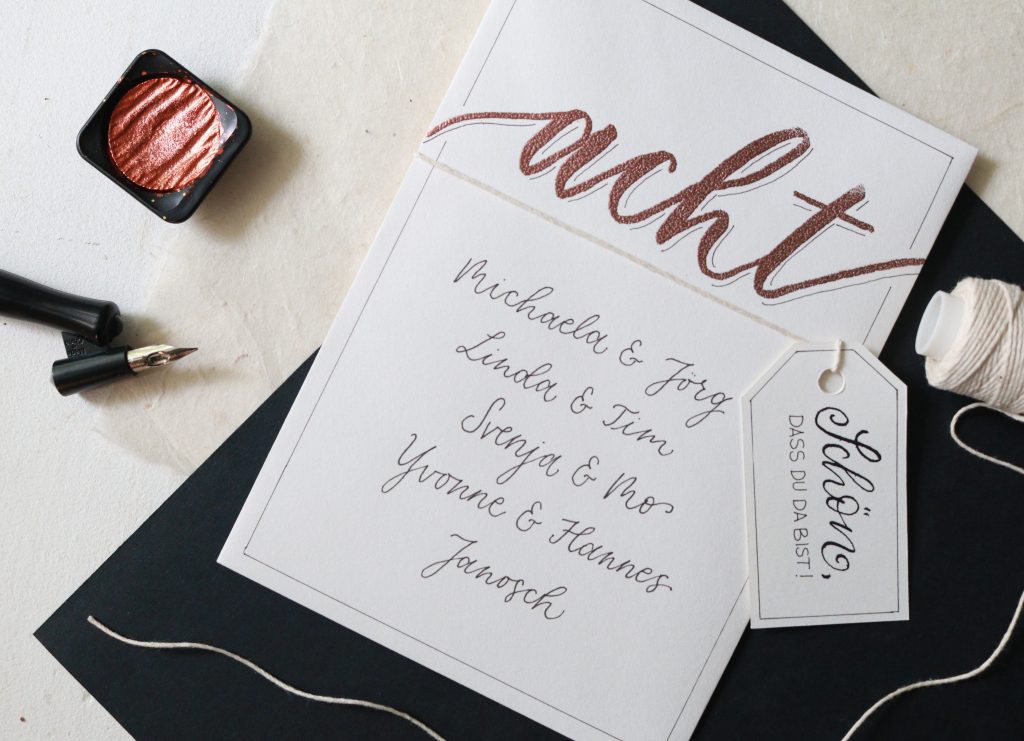 acht
Michaela & Jörg
Linda & Tim
Svenja & Mo
Yvonne & Hannes
Janosch
Schön,
DASS DU DA BIST!